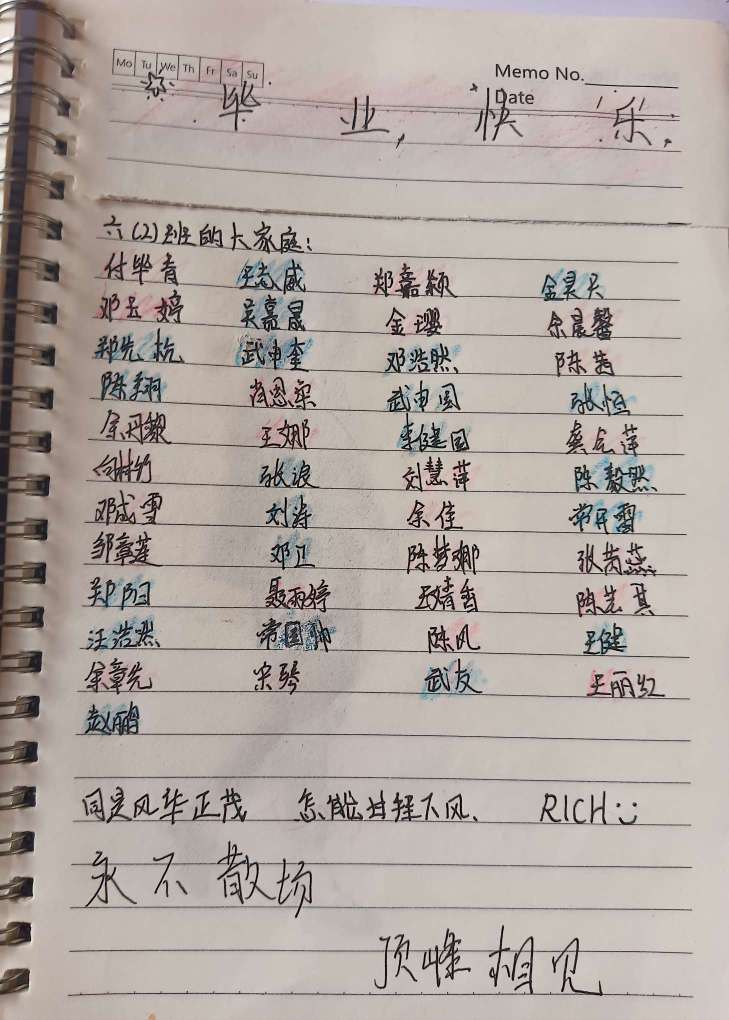 Mo Tu We Th Fr Sa Su
Memo No.
Date
毕业,快乐.
六(2)班的大家庭:
付毕青 王志威 郑嘉颖 金昊天
邓玉婷 吴嘉晟 金璎 余晨馨
郑先杭 武申奎 邓浩然 陈茜
陈翔 肖恩荣 武申国 张恒
余丹黎 王娜 李健国 龚长萍
向林钧 张浪 刘慧萍 陈毅然
邓成雪 刘涛 余佳 常开雷
邹章莲 邓卫 陈梦娜 张茜燕
郑阳 聂雨婷 王婧香 陈先其
汪浩然 常国帅 陈风 王健
余章先 宋琴 武友 王丽红
赵鹏
同是风华正茂 怎能甘拜下风、 RICH
永不散场
顶峰相见